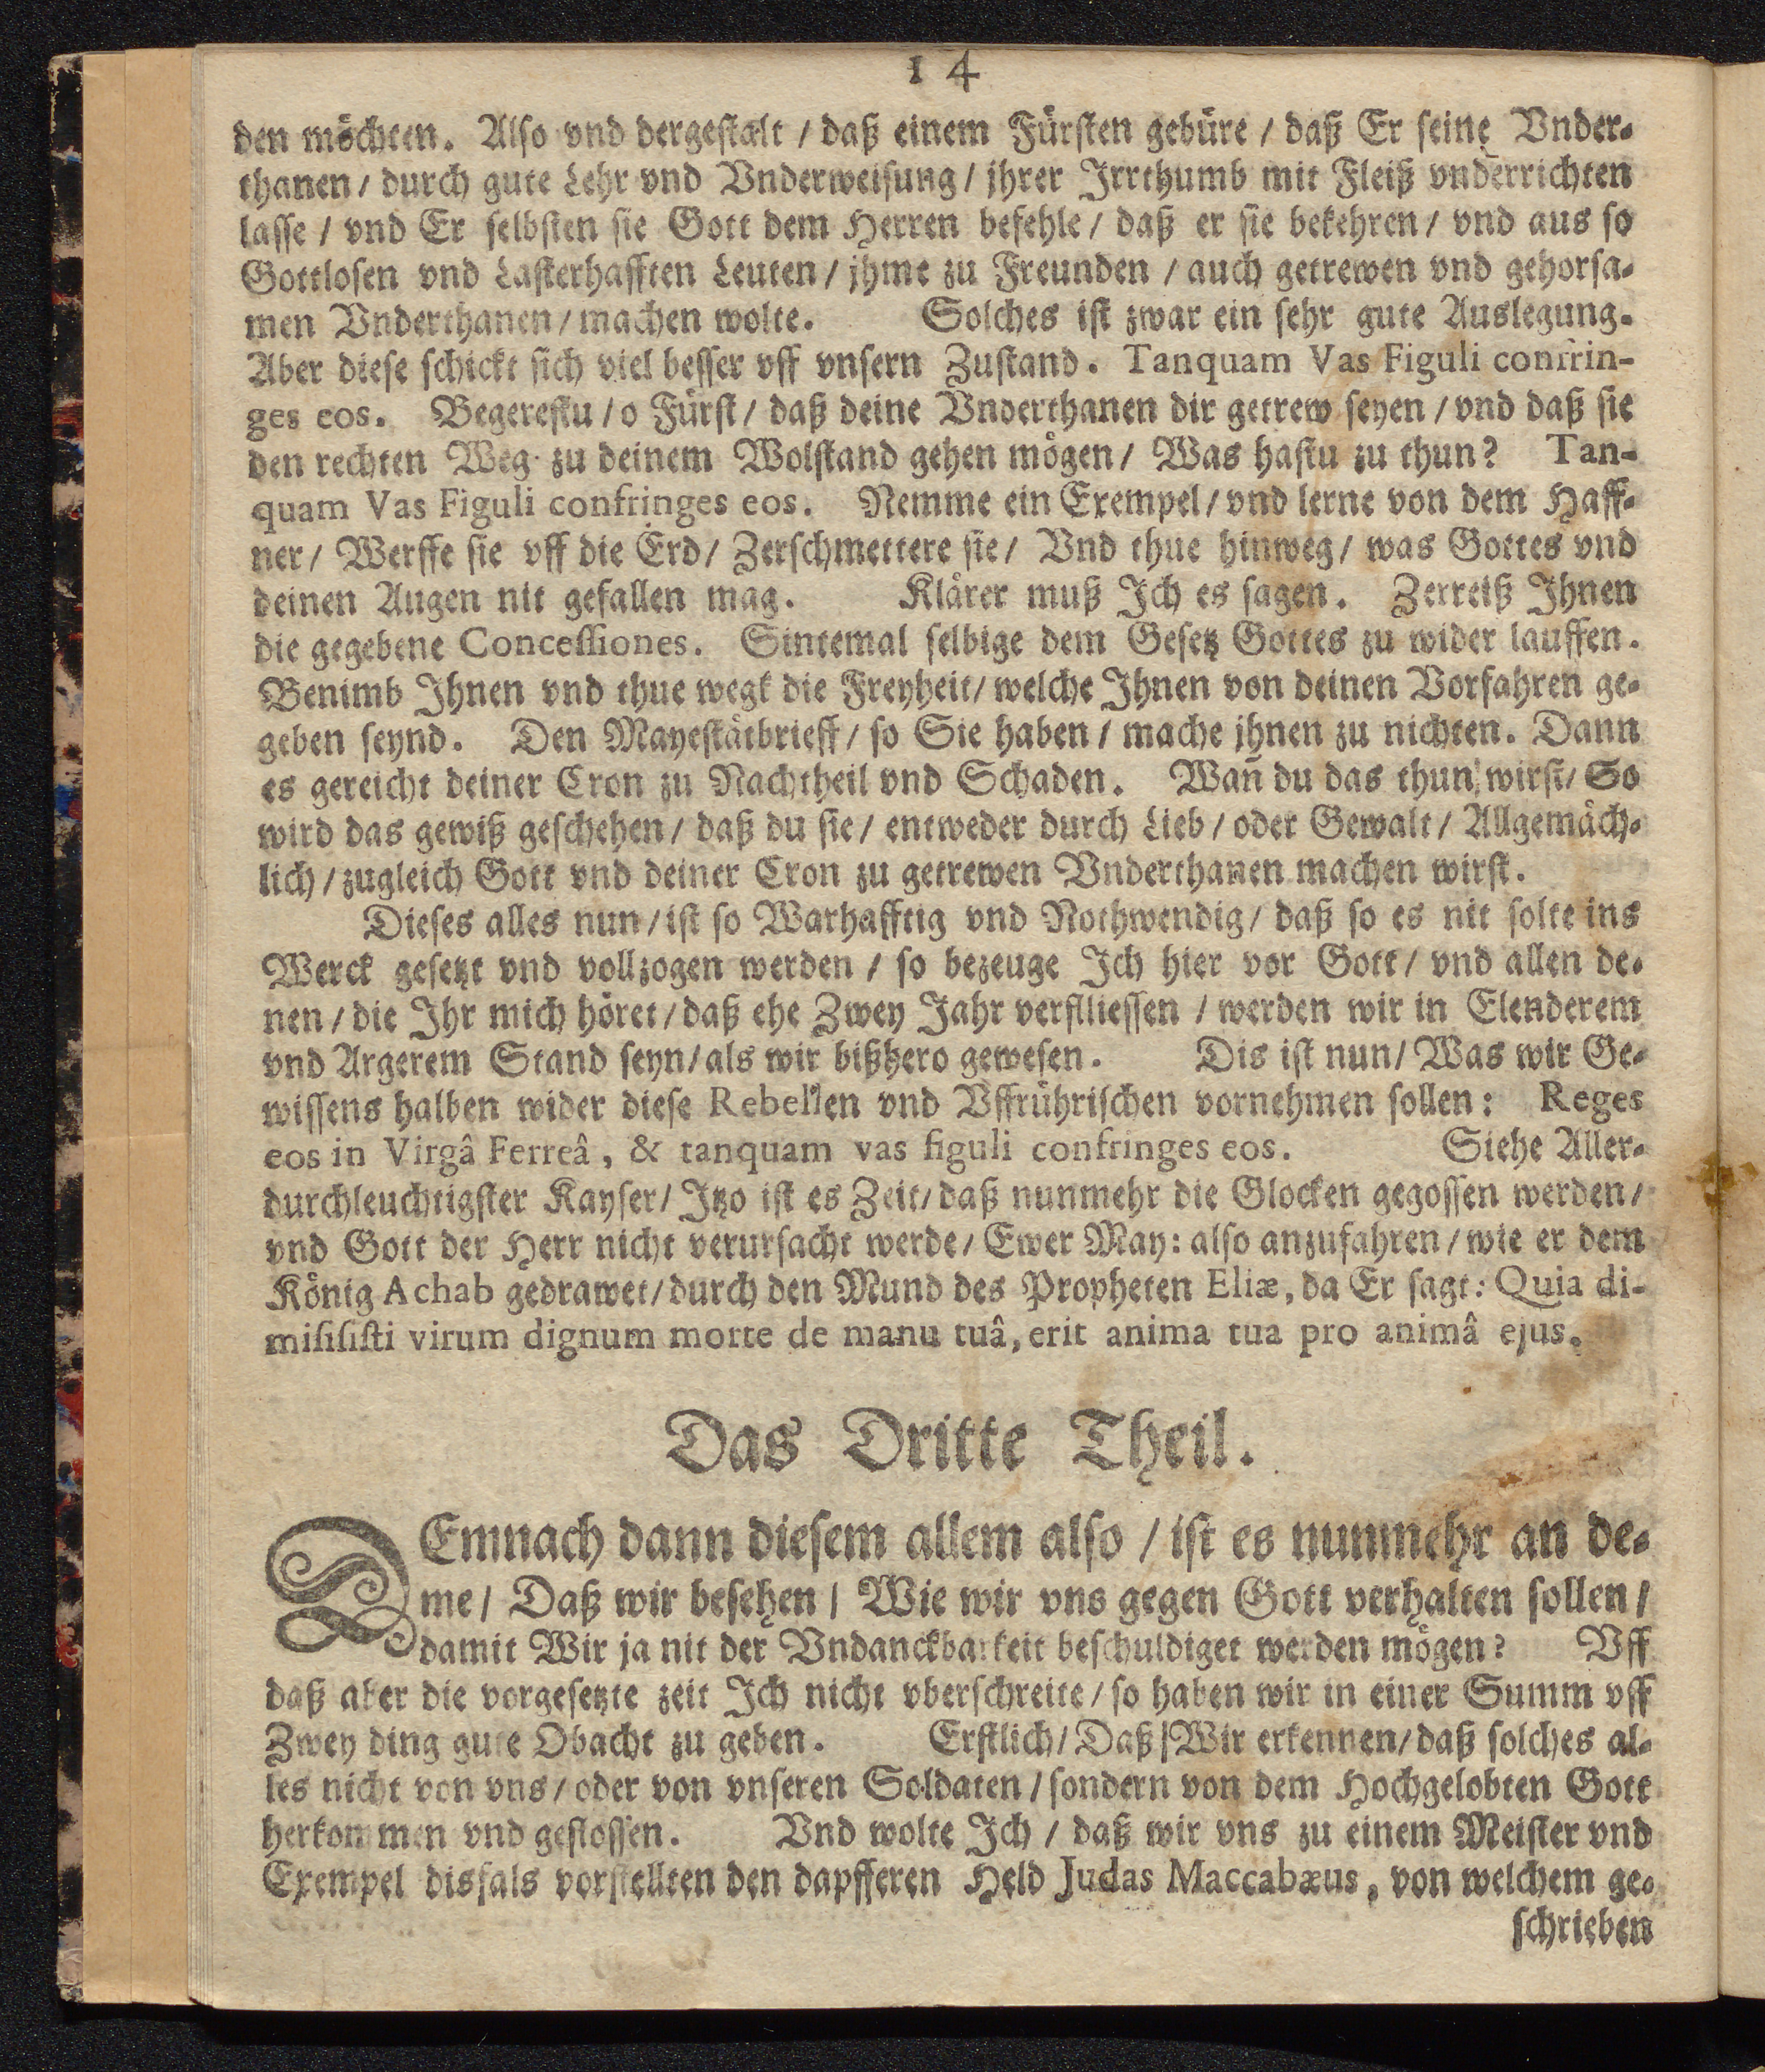 14
den möchten. Also vnd dergestalt / daß einem Fürsten gebüre / daß Er seine Vnder-
thanen / durch gute Lehr vnd Vnderweisung / jhrer Irrthumb mit Fleiß vnderrichten
lasse / vnd Er selbsten sie Gott dem Herren befehle / daß er sie bekehren / vnd aus so
Gottlosen vnd Lasterhafften Leuten / jhme zu Freunden / auch getrewen vnd gehorsa-
men Vnderthanen / machen wolte. Solches ist zwar ein sehr gute Auslegung.
Aber diese schickt sich viel besser vff vnsern Zustand. Tanquam Vas Figuli confrin-
ges eos. Begerestu / o Fürst / daß deine Vnderthanen dir getrew seyen / vnd daß sie
den rechten Weg zu deinem Wolstand gehen mögen / Was hastu zu thun? Tan-
quam Vas Figuli confringes eos. Nemme ein Exempel / vnd lerne von dem Haff-
ner / Werffe sie vff die Erd / Zerschmettere sie / Vnd thue hinweg / was Gottes vnd
deinen Augen nit gefallen mag. Klärer muß Ich es sagen. Zerreiß Ihnen
die gegebene Concessiones. Sintemal selbige dem Gesetz Gottes zu wider lauffen.
Benimb Ihnen vnd thue wegk die Freyheit / welche Ihnen von deinen Vorfahren ge-
geben seynd. Den Mayestätbrieff / so Sie haben / mache jhnen zu nichten. Dann
es gereicht deiner Cron zu Nachtheil vnd Schaden. Wañ du das thun wirst / So
wird das gewiß geschehen / daß du sie / entweder durch Lieb / oder Gewalt / Allgemäch-
lich / zugleich Gott vnd deiner Cron zu getrewen Vnderthanen machen wirst.
Dieses alles nun / ist so Warhafftig vnd Nothwendig / daß so es nit solte ins
Werck gesetzt vnd vollzogen werden / so bezeuge Ich hier vor Gott / vnd allen de-
nen / die Ihr mich höret / daß ehe Zwey Jahr verflliessen / werden wir in Elenderem
vnd Argerem Stand seyn / als wir bißhero gewesen. Dis ist nun / Was wir Ge-
wissens halben wider diese Rebellen vnd Vffrührischen vornehmen sollen: Reges
eos in Virgâ Ferreâ, & tanquam vas figuli confringes eos. Siehe Aller-
durchleuchtigster Kayser / Itzo ist es Zeit / daß nunmehr die Glocken gegossen werden /
vnd Gott der Herr nicht verursacht werde / Ewer May: also anzufahren / wie er dem
König Achab gedrawet / durch den Mund des Propheten Eliæ, da Er sagt: Quia di-
misisisti virum dignum morte de manu tuâ, erit anima tua pro animâ ejus.
Das Dritte Theil.
DEmnach dann diesem allem also / ist es nunmehr an de-
me / Daß wir besehen / Wie wir vns gegen Gott verhalten sollen /
damit Wir ja nit der Vndanckbarkeit beschuldiget werden mögen? Vff
daß aber die vorgesetzte zeit Ich nicht vberschreite / so haben wir in einer Summ vff
Zwey ding gute Obacht zu geben. Erstlich / Daß Wir erkennen / daß solches al-
les nicht von vns / oder von vnseren Soldaten / sondern von dem Hochgelobten Gott
herkommen vnd geflossen. Vnd wolte Ich / daß wir vns zu einem Meister vnd
Exempel disfals vorstellten den dapfferen Held Judas Maccabæus, von welchem ge-
schrieben